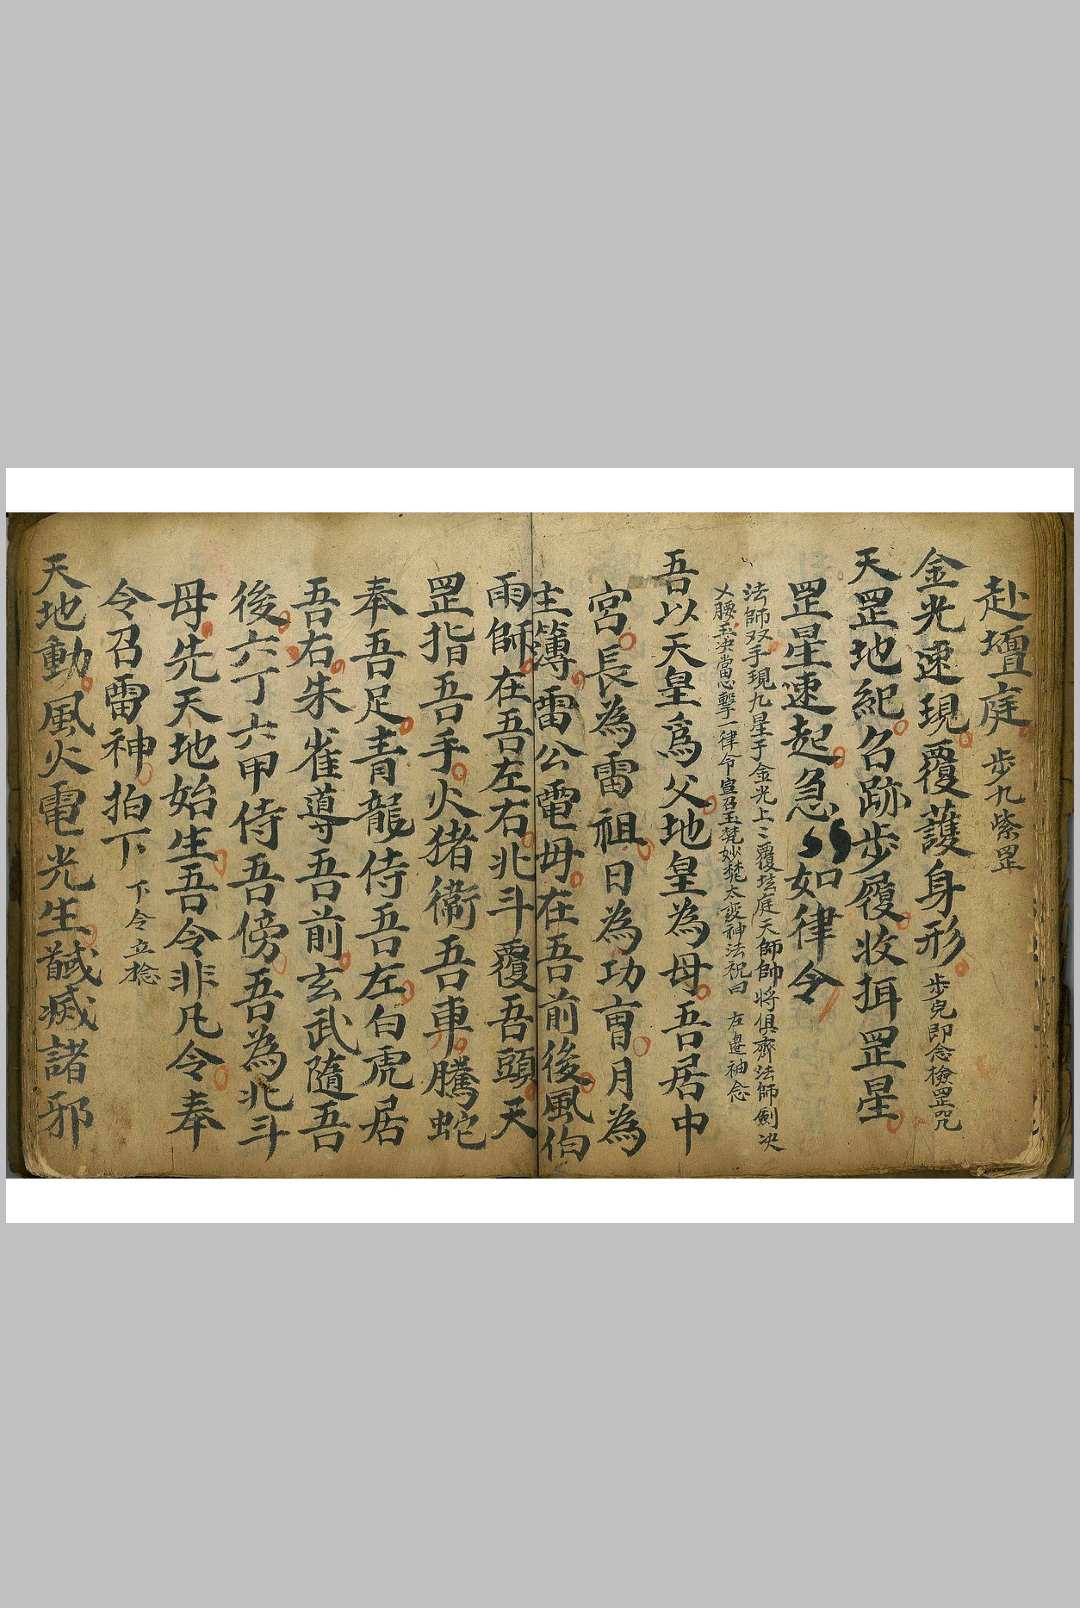 赴壇庭 步九紫罡
金光速現覆護身形 步克即念檢罡咒
天罡地紀名跡步履收捐罡星
罡星速起急〻如律令
法師双手現九星于金光上〻覆坛庭天師帥將俱齊法師劍决
當心擊一律令宣召玉梵妙梵太變神法祝曰 左邊袖念
吾以天皇爲父地皇為母吾居中
宮長為雷祖日為功曹月為
主簿雷公電母在吾前後風伯
雨師在吾左右北斗覆吾頭天
罡指吾手火猪衛吾車騰蛇
奉吾足青龍侍吾左白虎居
吾右朱雀導吾前玄武隨吾
後六丁六甲侍吾傍吾為北斗
母先天地始生吾令非凡令奉
令召雷神拍下 下令立棯
天地動風火電光生馘滅諸邪